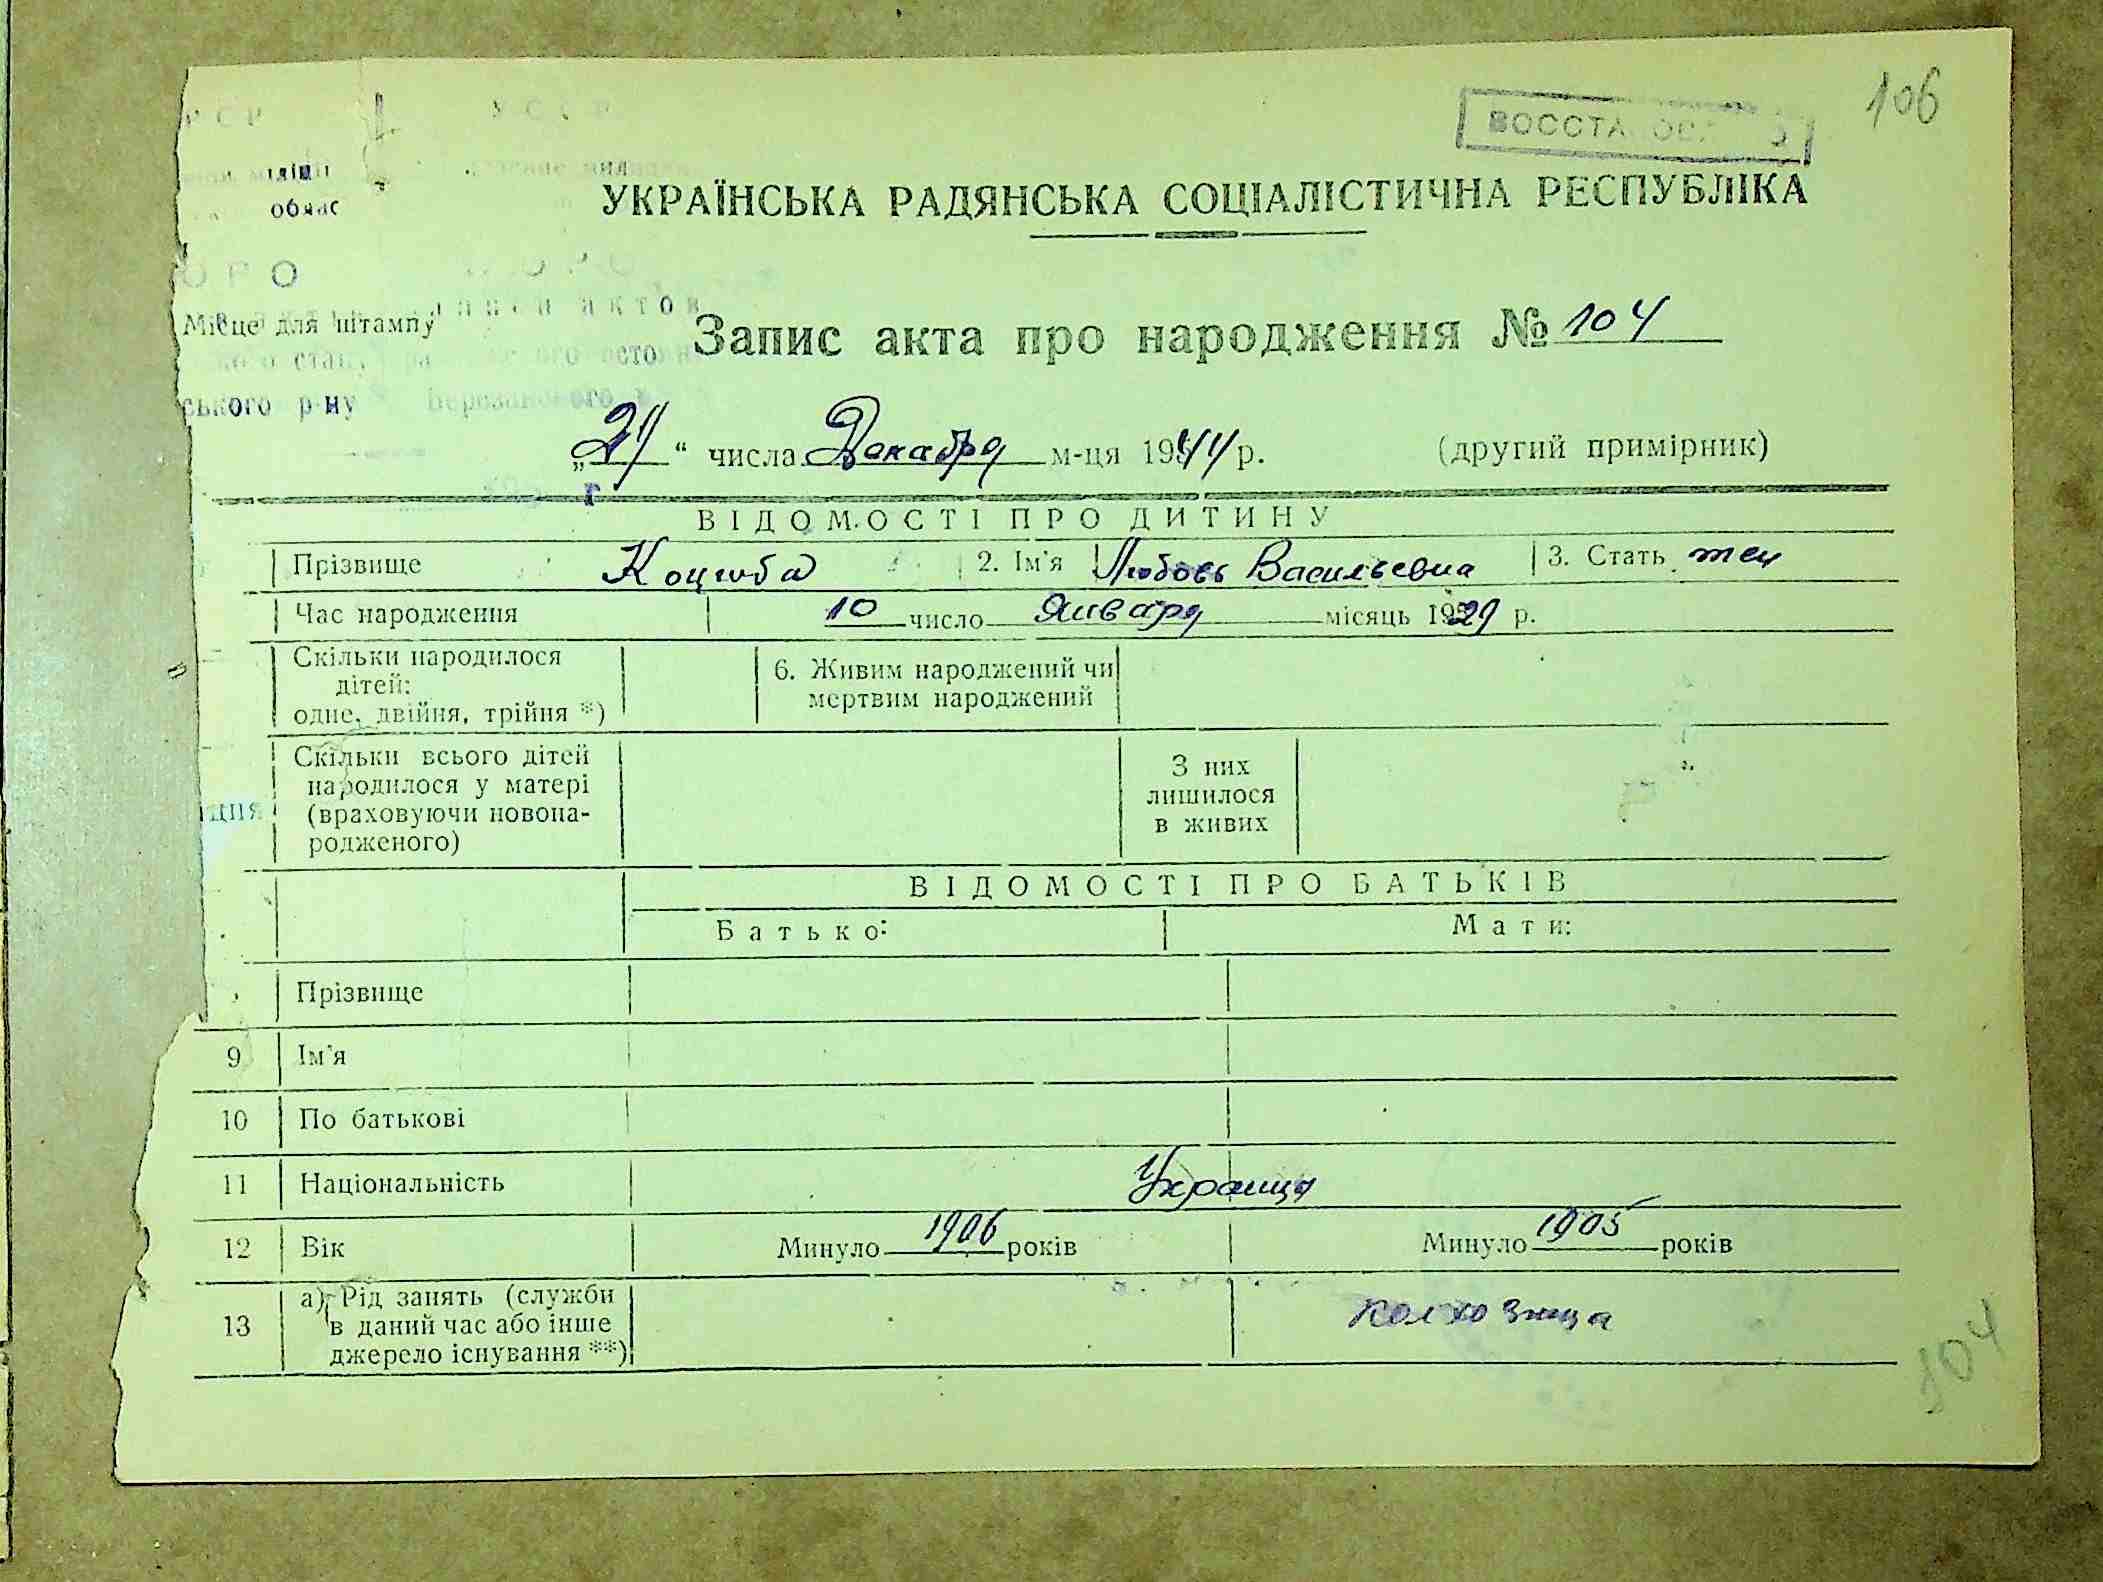 106
УКРАЇНСЬКА РАДЯНСЬКА СОЦІАЛІСТИЧНА РЕСПУБЛІКА
Місце для штампу
Запис акта про народження № 104
ського р-ну
„21“ числа Декабря м-ця 1944 р. (другий примірник)
ВІДОМОСТІ ПРО ДИТИНУ
Прізвище Коцюба 2. Ім'я Любовь Васильевна 3. Стать жен
Час народження 10 число Января місяць 1929 р.
Скільки народилося
дітей:
одне, двійня, трійня *)
6. Живим народжений чи
мертвим народжений
Скільки всього дітей
народилося у матері
(враховуючи новона-
родженого)
З них
лишилося
в живих
ВІДОМОСТІ ПРО БАТЬКІВ
Батько: Мати:
Прізвище
9 Ім'я
10 По батькові
11 Національність Украинця
12 Вік Минуло 1906 років Минуло 1905 років
13 а) Рід занять (служби
в даний час або інше
джерело існування **)
колхозница
104